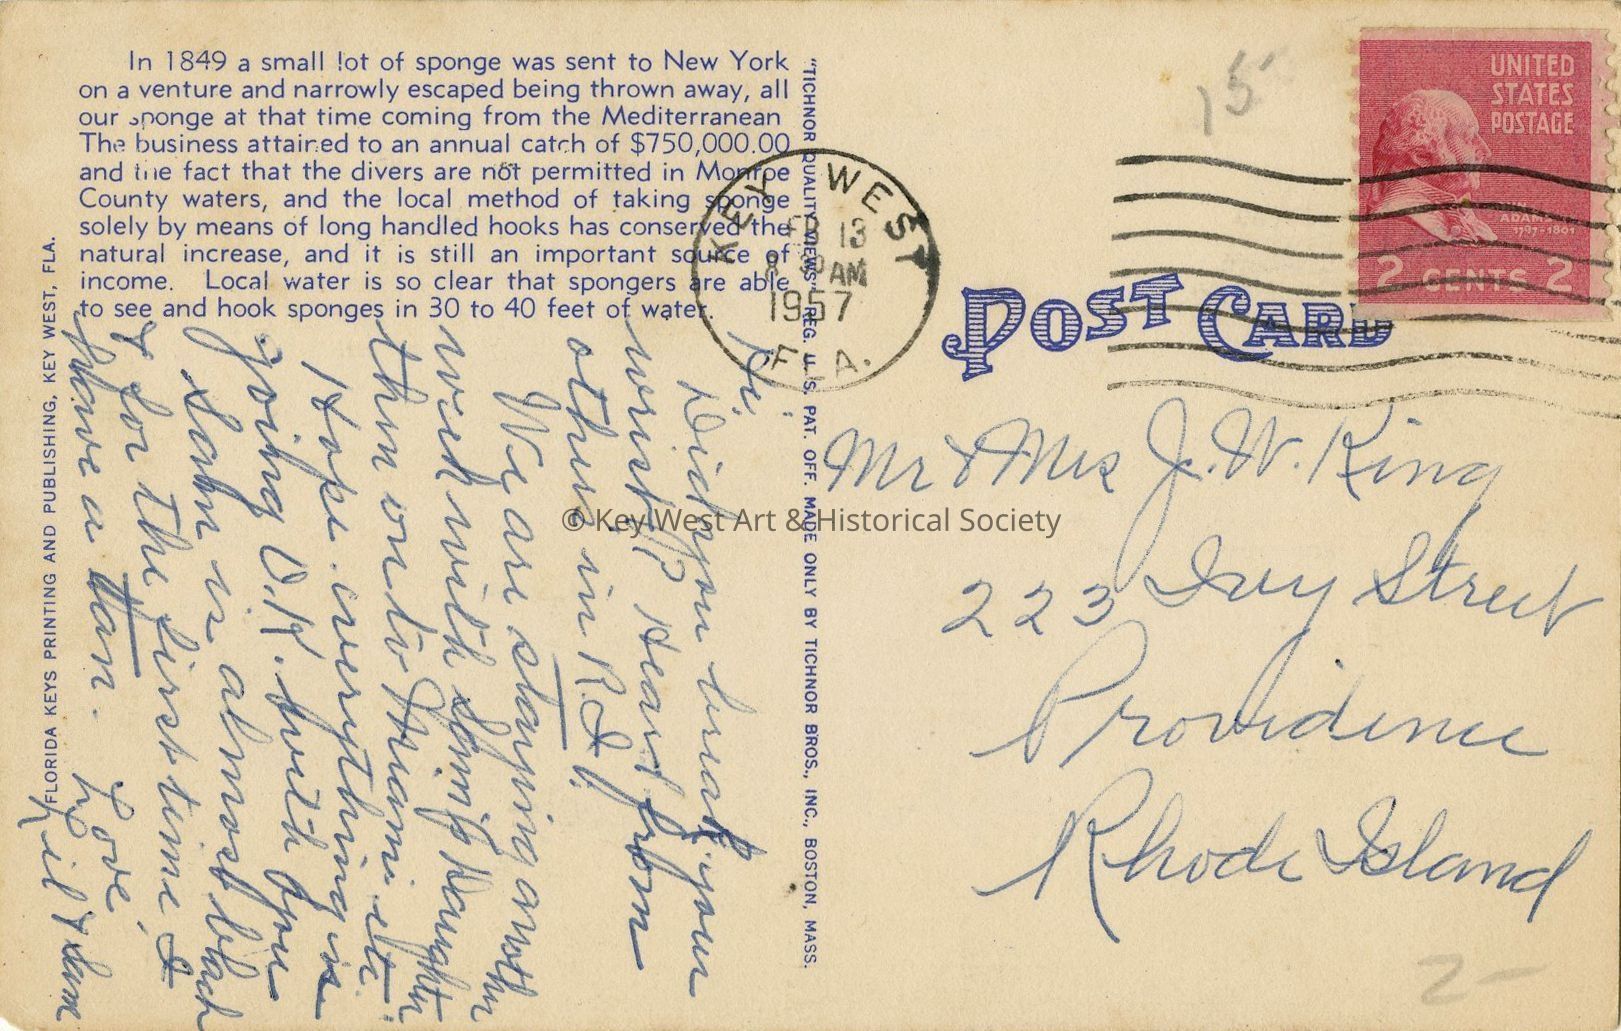 In 1849 a small lot of sponge was sent to New York
on a venture and narrowly escaped being thrown away, all
our sponge at that time coming from the Mediterranean
The business attained to an annual catch of $750,000.00
and the fact that the divers are not permitted in Monroe
County waters, and the local method of taking sponge
solely by means of long handled hooks has conserved the
natural increase, and it is still an important source of
income. Local water is so clear that spongers are able
to see and hook sponges in 30 to 40 feet of water.
Hi:
Did you break your
wrist? Heard from
others in R.I.
We are staying another
week with Sam's daughter
then on to Miami etc.
Hope everything is
going O.K. with you
Sam is almost black
& for the first time I
have a tan. Love,
& Sam
FLORIDA KEYS PRINTING AND PUBLISHING, KEY WEST, FLA.
"TICHNOR QUALITY VIEWS" REG. U. S. PAT. OFF. MADE ONLY BY TICHNOR BROS., INC., BOSTON, MASS.
KEY WEST
FEB 13
8 30 AM
1957
FLA.
POST CARD
15-
UNITED
STATES
POSTAGE
JOHN
ADAMS
1797-1801
2 CENTS 2
Mr & Mrs J. W. King
223 Ivy Street
Providence
Rhode Island
2-
© Key West Art & Historical Society